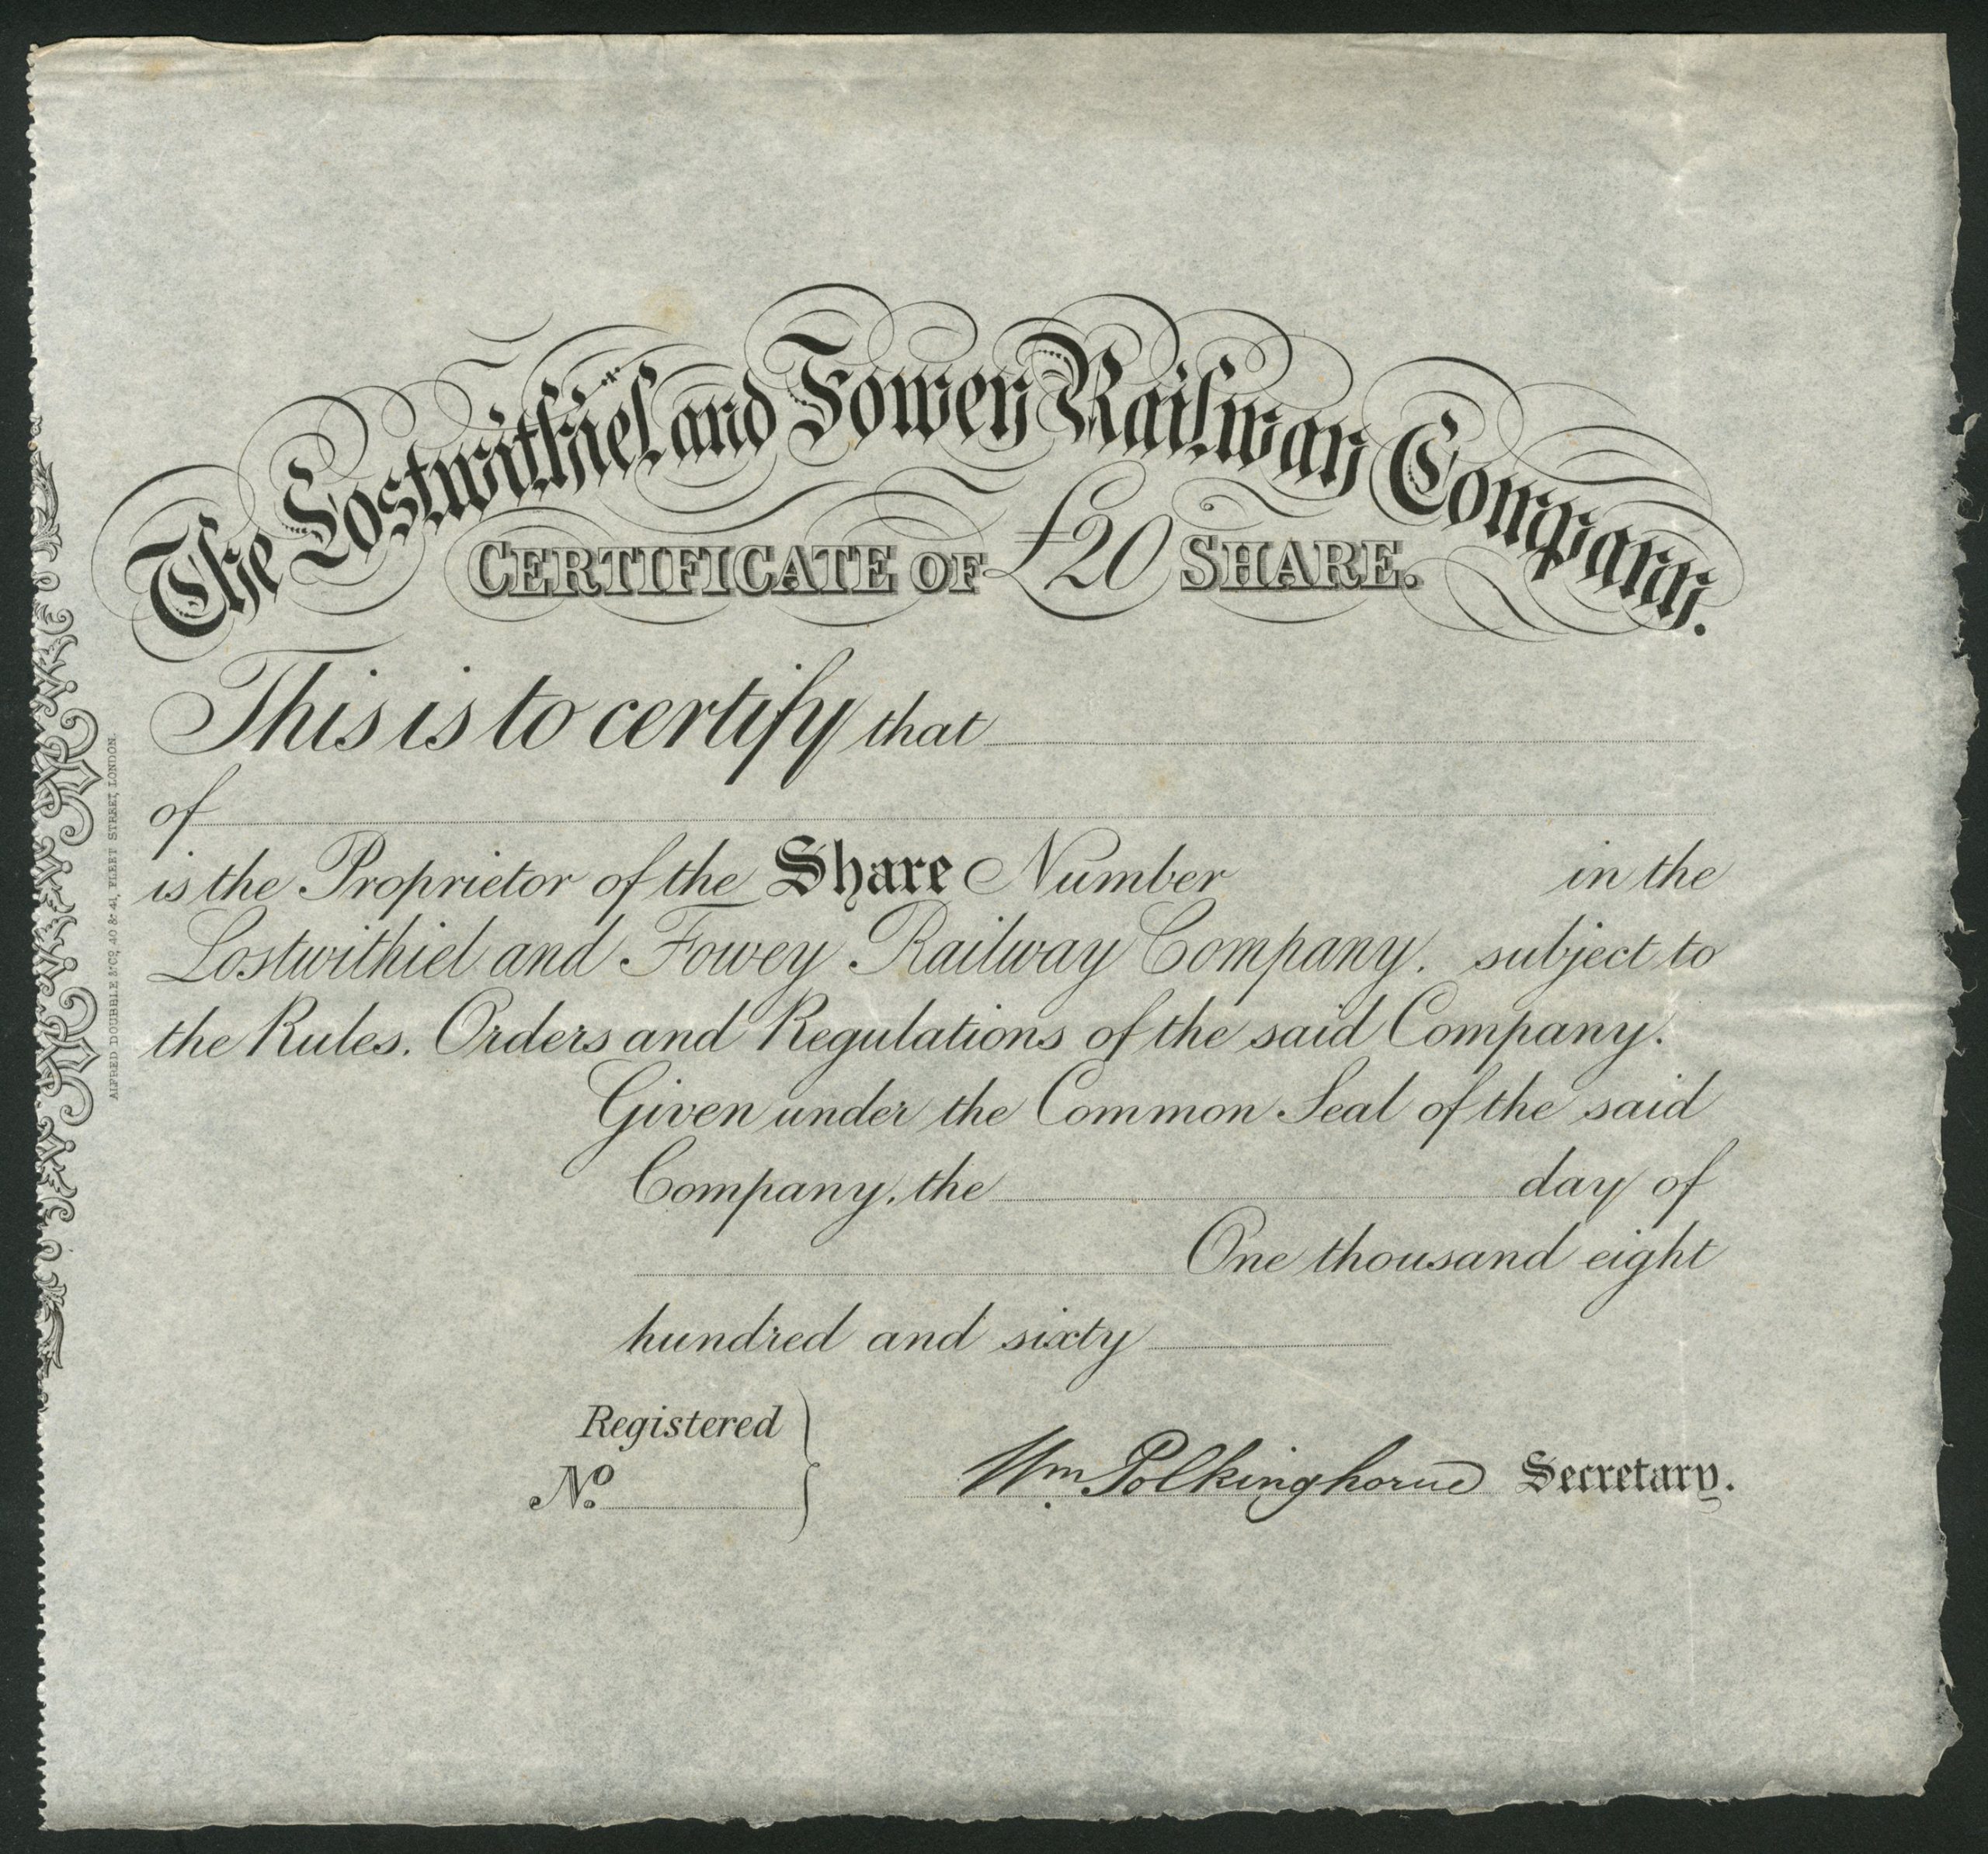 The Lostwithiel and Fowey Railway Company.
CERTIFICATE OF £20 SHARE.
This is to certify that
of
is the Proprietor of the Share Number in the
Lostwithiel and Fowey Railway Company, subject to
the Rules, Orders and Regulations of the said Company.
Given under the Common Seal of the said
Company, the day of
One thousand eight
hundred and sixty
Registered
No.
Wm. Polkinghorne Secretary.
ALFRED DOUBBLE & Co, 40 & 41, FLEET STREET, LONDON.